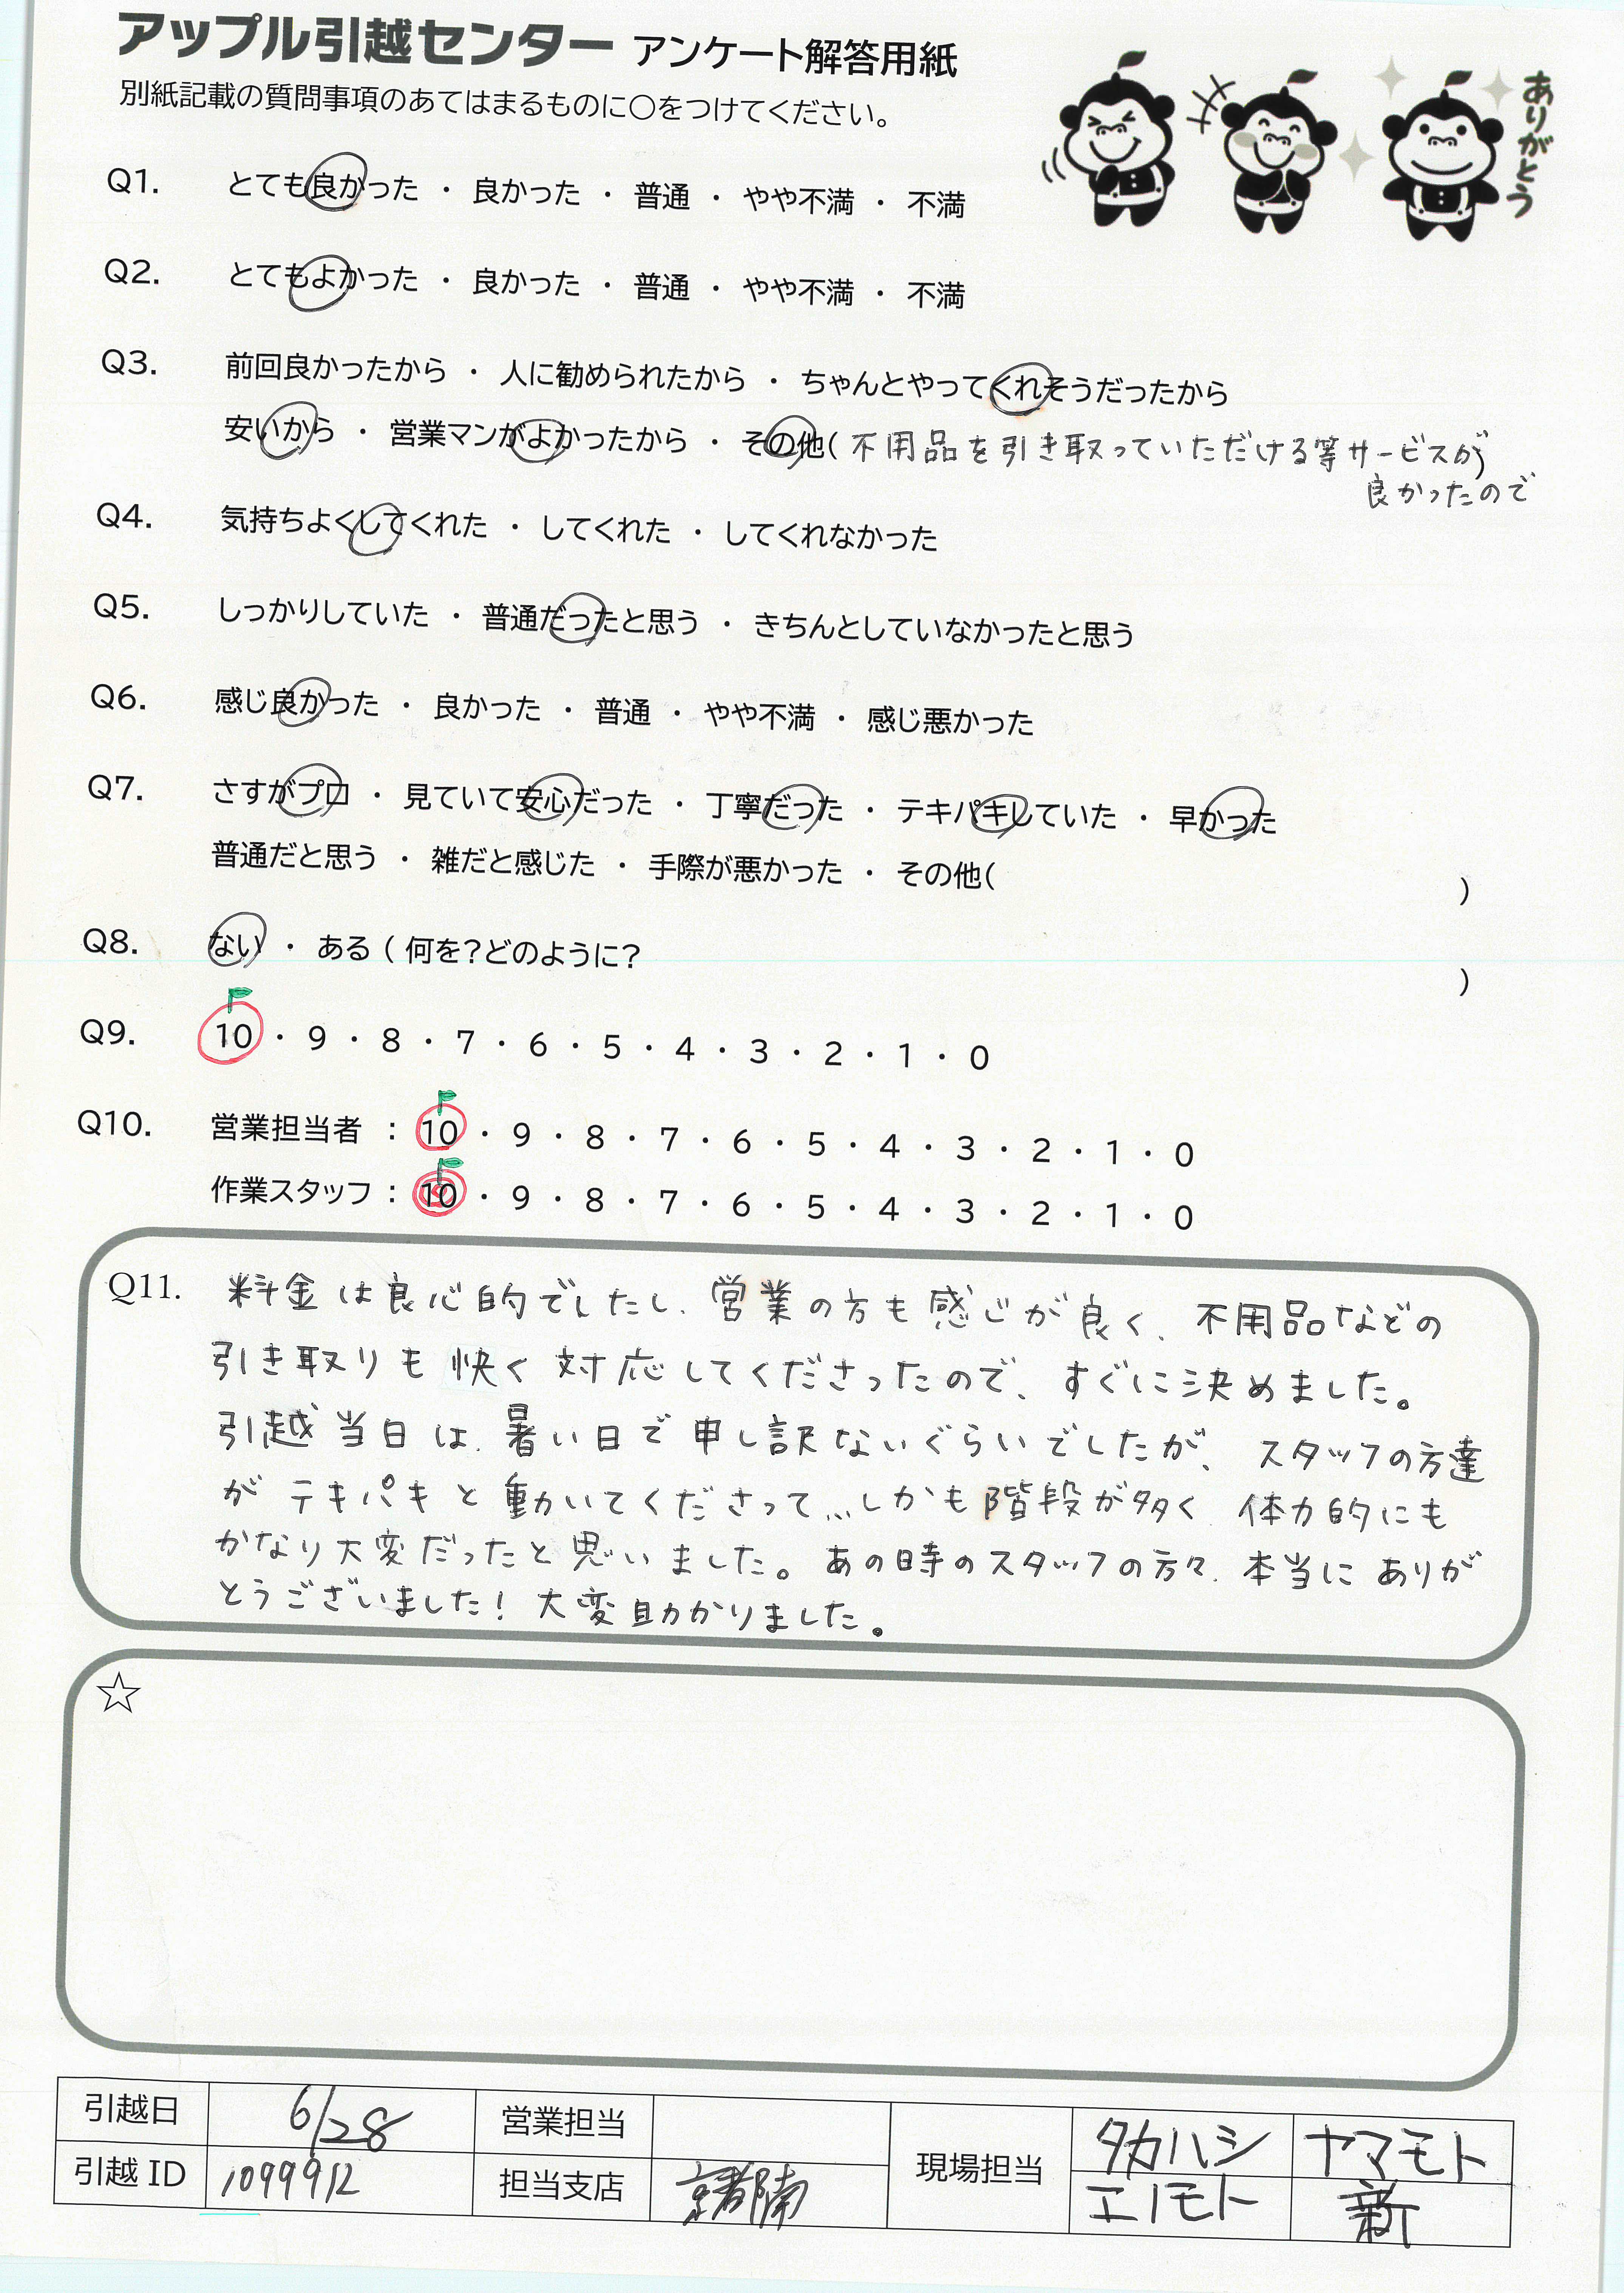 アップル引越センター アンケート解答用紙
別紙記載の質問事項のあてはまるものに○をつけてください。
ありがとう
Q1. とても良かった ・ 良かった ・ 普通 ・ やや不満 ・ 不満
Q2. とてもよかった ・ 良かった ・ 普通 ・ やや不満 ・ 不満
Q3. 前回良かったから ・ 人に勧められたから ・ ちゃんとやってくれそうだったから
安いから ・ 営業マンがよかったから ・ その他( 不用品を引き取っていただける等サービスが)
良かったので
Q4. 気持ちよくしてくれた ・ してくれた ・ してくれなかった
Q5. しっかりしていた ・ 普通だったと思う ・ きちんとしていなかったと思う
Q6. 感じ良かった ・ 良かった ・ 普通 ・ やや不満 ・ 感じ悪かった
Q7. さすがプロ ・ 見ていて安心だった ・ 丁寧だった ・ テキパキしていた ・ 早かった
普通だと思う ・ 雑だと感じた ・ 手際が悪かった ・ その他( )
Q8. ない ・ ある ( 何を?どのように? )
Q9. 10 ・ 9 ・ 8 ・ 7 ・ 6 ・ 5 ・ 4 ・ 3 ・ 2 ・ 1 ・ 0
Q10. 営業担当者 : 10 ・ 9 ・ 8 ・ 7 ・ 6 ・ 5 ・ 4 ・ 3 ・ 2 ・ 1 ・ 0
作業スタッフ : 10 ・ 9 ・ 8 ・ 7 ・ 6 ・ 5 ・ 4 ・ 3 ・ 2 ・ 1 ・ 0
Q11. 料金は良心的でしたし、営業の方も感じが良く、不用品などの
引き取りも快く対応してくださったので、すぐに決めました。
引越当日は、暑い日で申し訳ないぐらいでしたが、スタッフの方達
がテキパキと動いてくださって…しかも階段が多く、体力的にも
かなり大変だったと思いました。あの時のスタッフの方々、本当にありが
とうございました! 大変助かりました。
☆
引越日 6/28 営業担当 現場担当 タカハシ ヤマモト
引越 ID 1099912 担当支店 京都南 エノモト 新